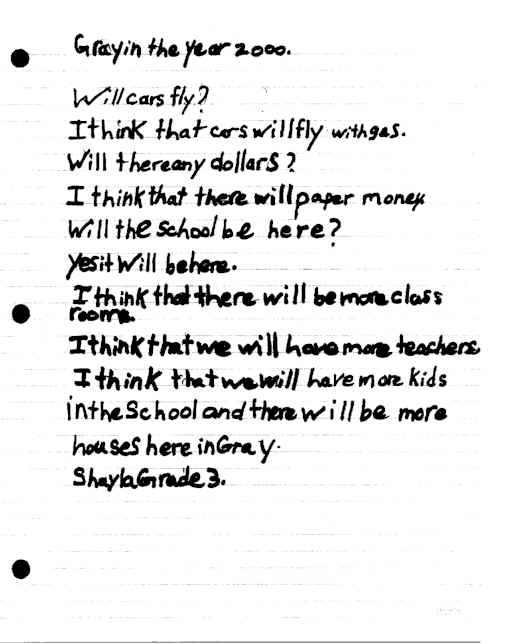 Gray in the year 2000.
Will cars fly?
I think that cars will fly with gas.
Will there any dollars?
I think that there will paper money
Will the school be here?
Yes it Will be here.
I think that there will be more class
rooms.
I think that we will have more teachers
I think that we will have more kids
in the School and there will be more
houses here in Gray.
Shayla Grade 3.